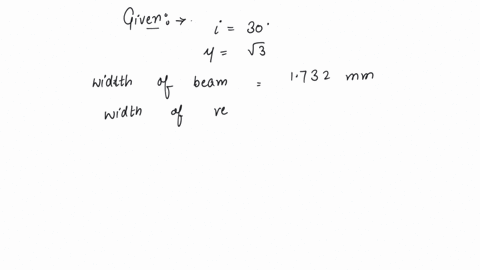 Given:→
i = 30°
y = √3
width of beam = 1.732 mm
width of re